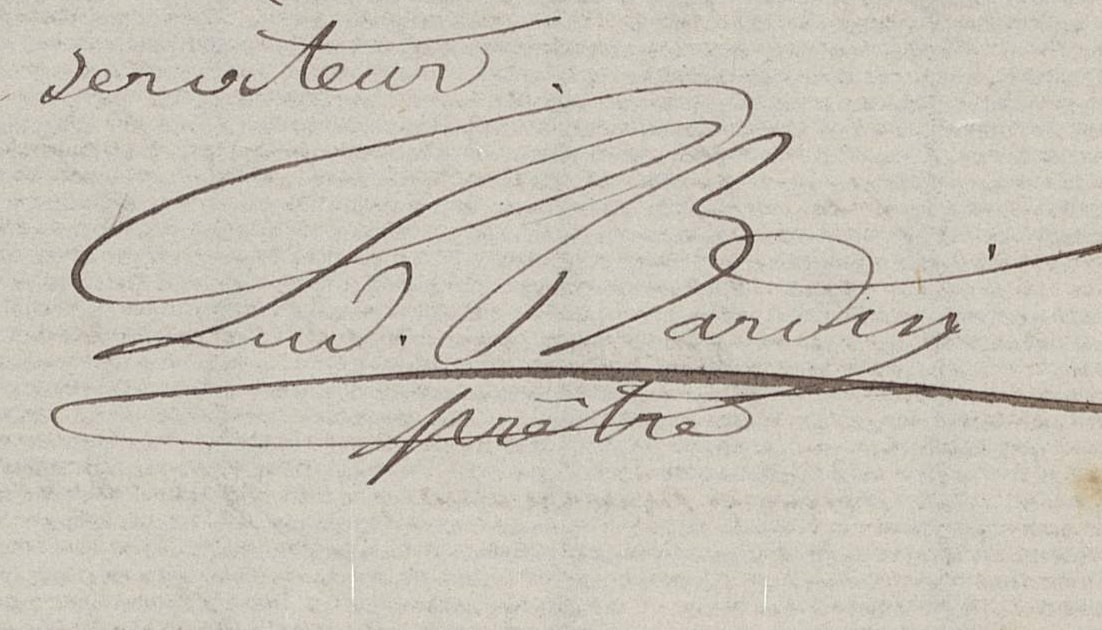 serviteur.
Lud. Bardin
prêtre